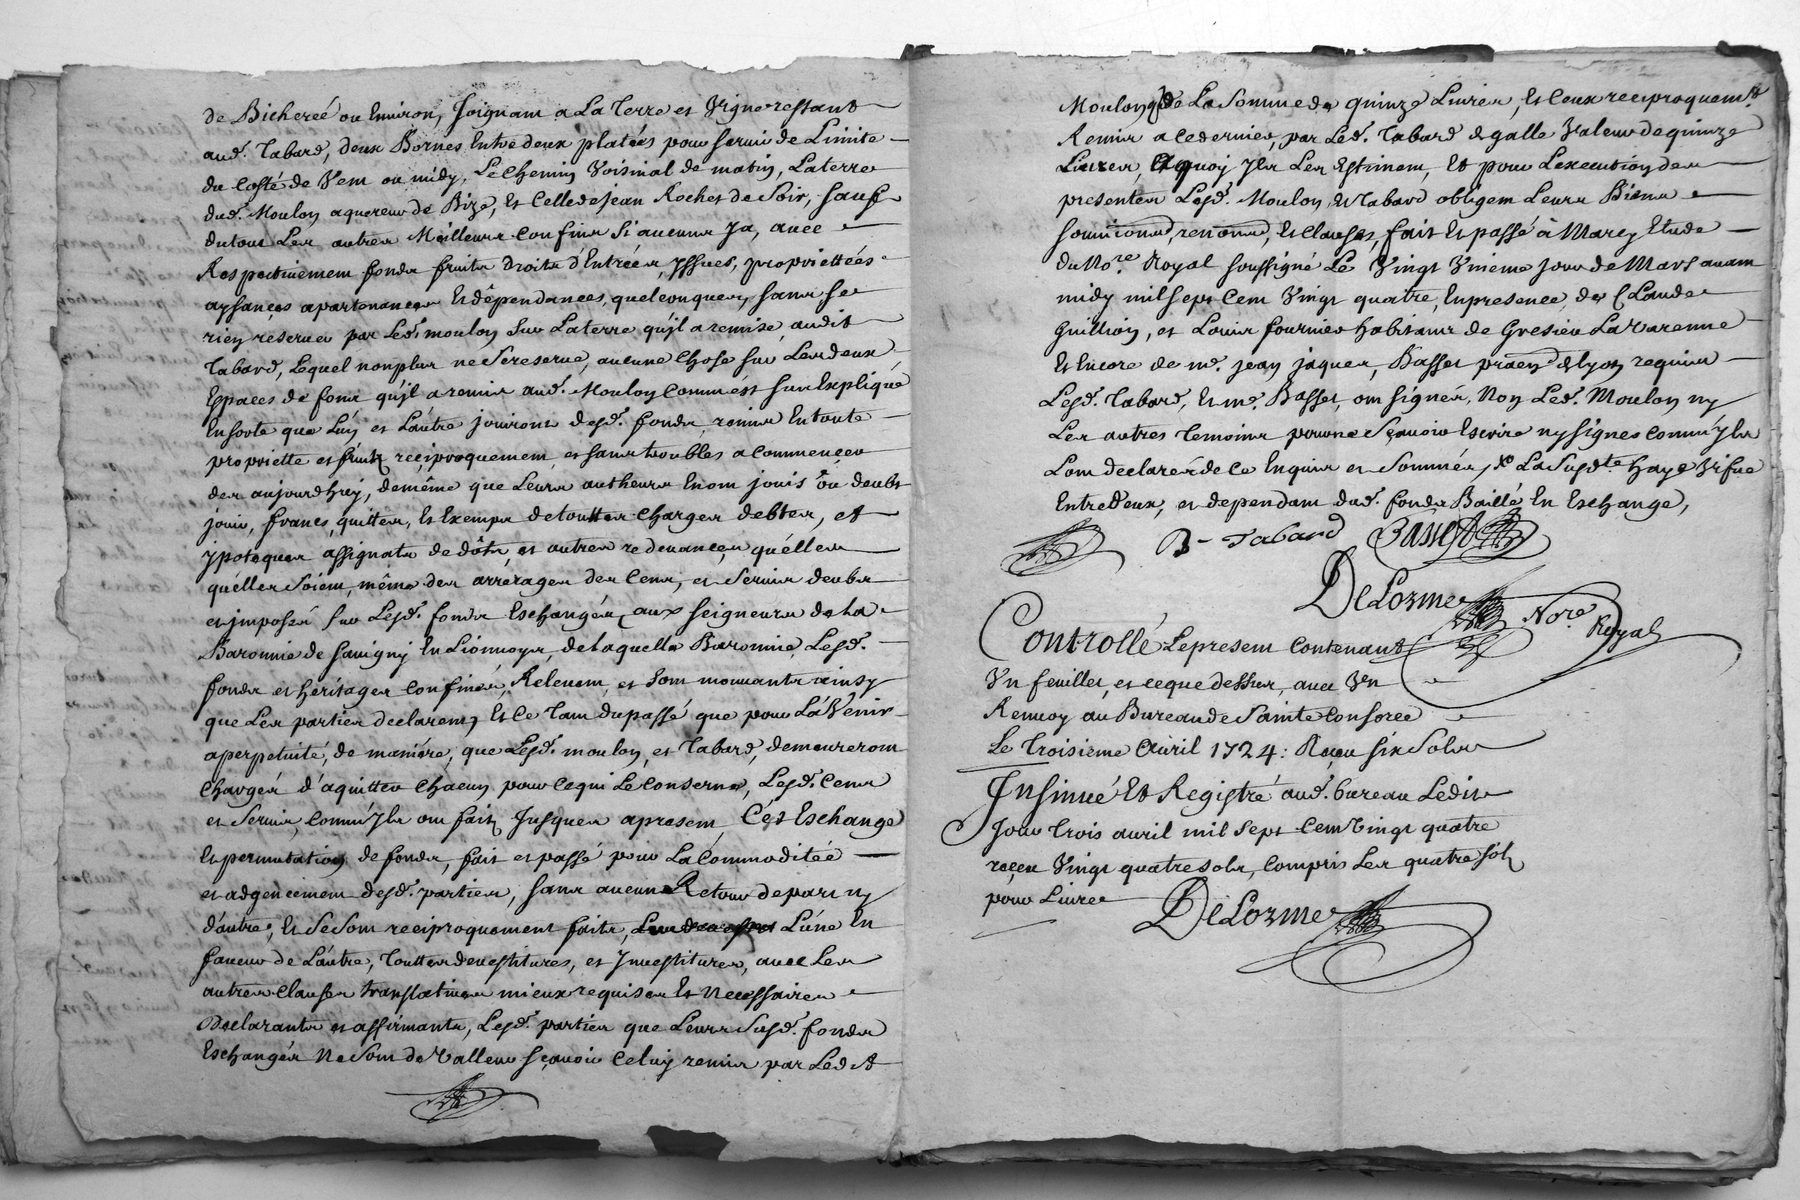 de Bichereé ou Environ, Joignant a La Terre et Vigne restant
aud. Tabard, deux Bornes Entre deux platéés pour servir de Limite
du Costé de Vent ou midy, Le Chemin Voisinal de matin, La terre
dud. Moulon aquereur de Bize, Et Celle de Jean Rochet de Soir, Sauf
du tout Les autres Meilleurs Confins Si aucuns ya, avec
Respectivement fonds fruits Droits d'Entréés, yssues, proprietteés
aysances apartenances Et dépendances, quelconques, sans se
rien reserver par Led. moulon Sur La terre qu'jl a remise audit
Tabard, Lequel non plus ne Se reserve, aucune Chose sur Les deux
Espaces de fond qu'jl a remis aud. Moulon Comme est sus Expliqué
En sorte que L'un et L'autre jouiront desd. fonds remis En toute
propriette et fruits reciproquement et sans troubles a Commencer
des aujourdhuy, de méme que Leurs autheurs En ont jouis ou deubt
jouir, francs, quittes, Et Exempts de touttes Charges debtes, et
ypoteques assignats de dots, et autres redevances, qu'élles
qu'élles Soient, méme des arrerages des Cens, et Servis deubs
et jmposés sur Lesd. fonds Eschangés, aux Seigneurs de La
Baronnie de Savigny En Lionnoys, de laquelle Baronnie, Lesd.
fonds et héritages Confinés, Relevent, et Sont mouvants ainsy
que Les parties declarent, Et Ce Tant du passé que pour L'àVenir
a perpetuité, de maniére, que Lesd. moulon, et Tabard, demeureront
Chargés d'aquitter Chacun pour Ce qui Le Conserne, Lesd. Cens
et Servis, Comm'Jls ont fait Jusques apresent, Cét Eschange
Et permutation de fonds, fait et passé pour La Commoditéé
et adgencement desd. parties, sans aucune Retour de part ny
d'autre, Et Se Sont reciproquement faits, L'úne En
faveur de L'aútre, Touttes devestitures, et Jnvestitures, avec Les
autres Clauses translatives mieux requises Et Necessaires
Declarants et affirmants, Lesd. parties que Leurs Susd. fonds
Eschangés Ne Sont de Valleur sçavoir Celuy remis par Ledit
Moulon, de La Somme de quinze Livres, Et Ceux reciproquemt.
Remis a Ce dernier, par Led. Tabard Egalle Valeur de quinze
Livres, A quoy Jls Les Estiment, Et pour L'execution des
presentes Lesd. Moulon Et Tabard obligent Leurs Biens
soumiond, renond, Et Clauses, fait Et passé à Marcy Etude
du Nore. Royal soussigné Le Vingt Vnieme jour de Mars avant
midy mil Sept Cent Vingt quatre, En presence, de Claude
Guillion, et Louis fournier habitants de Gresieu La Varenne
Et Encore de me. jean jaques, Basset praen de Lyon requis
Lesd. Tabard, Et me. Basset, ont signés, Non Led. Moulon ny
Les autres temoins pour ne Sçavoir Escrire ny signer Comm'Jls
L'ont declarés de Ce Enquis et Sommés, La Susdte haye Vifue
Entredeux, et dependant dud. fonds Baillé En Eschange,
B- Tabard Basset
DeLorme Nore Royal
Controllé Le present Contenant
Vn feuillet, et ce que dessus, avec Vn
Renvoy au Bureau de Sainte Consorce
Le Troisieme Avril 1724: Reçeu Six Sols
Jnsinué Et Registré aud. Bureau Ledit
Jour Trois avril mil Sept Cent Vingt quatre
reçeu Vingt quatre sols, Compris Les quatre sols
pour Livre
DeLorme